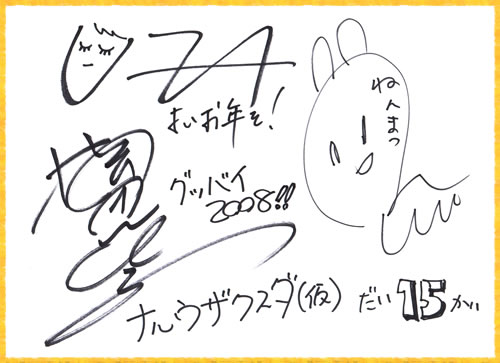 よいお年を!
ねんまつ
グッバイ
2008!!
ナルウザクスダ(仮) だい15かい